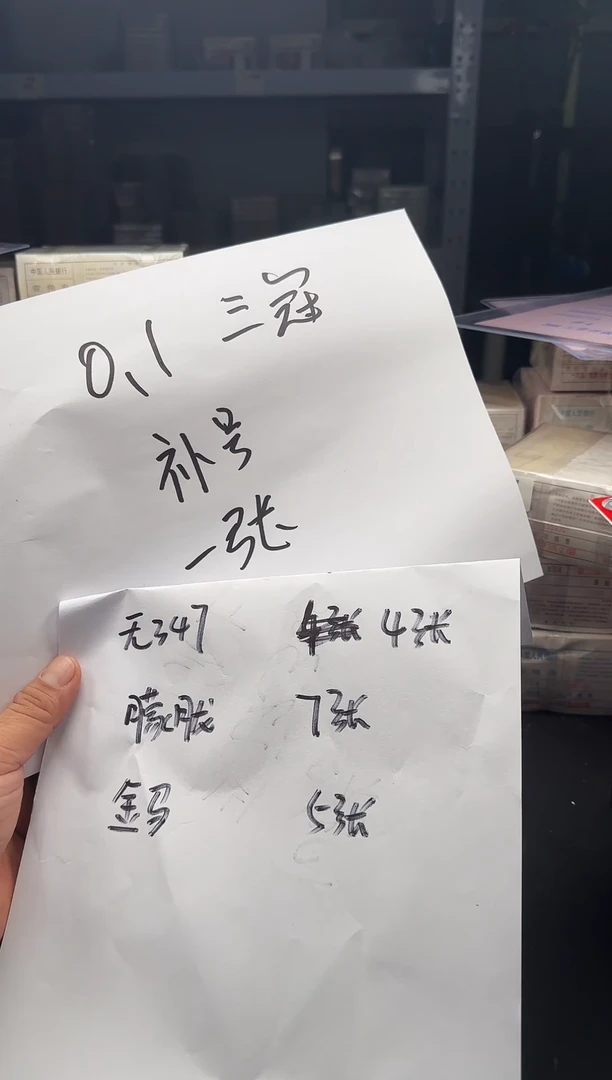 0.1 三冠
补号
一张
无347 4张
朦胧 7张
金马 5张
中国人民银行